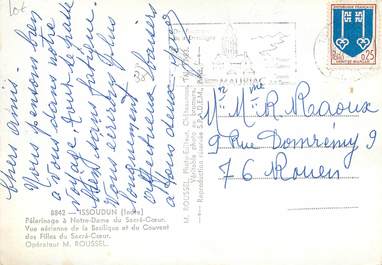 Chéris
Nous pensons bien
à Vous dans notre
voyage, tout se passe
bien sans fatigue.
Vous écrirons plus
longuement
affectueux baisers
à tous deux
8842 — ISSOUDUN (Indre)
Pèlerinage à Notre-Dame du Sacré-Cœur.
Vue aérienne de la Basilique et du Couvent
des Filles du Sacré-Cœur.
Opérateur M. ROUSSEL.
M. ROUSSEL, Photo-Edit.
Véritable photo au bromure
Reproduction réservée
REPUBLIQUE FRANÇAISE
0,25
Mr Mme R. Raoux
9 Rue Domrémy 9
76 Rouen